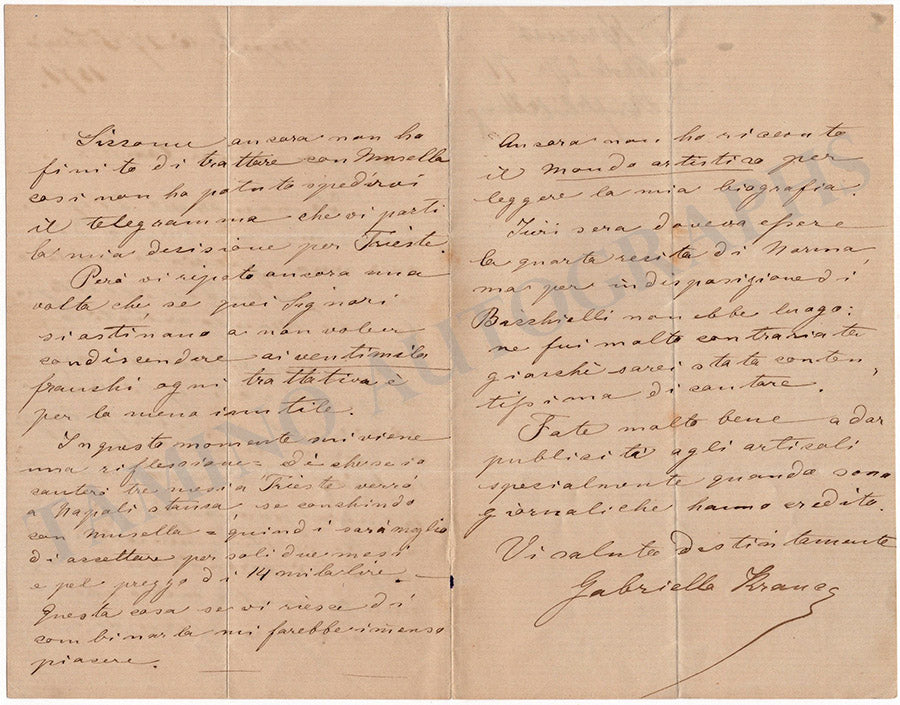 Sissome ancora non ho
finito di trattare con Musella
così non ho potuto spedirvi
il telegramma che vi parti
la mia decisione per Trieste.
Però vi ripeto ancora una
volta che, se quei Signori
si astinano a non voler
condiscendere ai ventimila
franchi ogni trattativa è
per lo meno inutile.
In questo momento mi viene
una riflessione = Si è che se io
canterò tre mesi a Trieste verrò
a Napoli stanca, se conchiudo
con Musella = quindi sarà meglio
di accettare per soli due mesi
e pel prezzo di 14 mila lire. –
Questa cosa se vi riesce di
combinarla mi farebbe immenso
piacere.
Ancora non ho ricevuto
il Mondo artistico per
leggere la mia biografia.
Ieri sera doveva essere
la quarta recita di Norma,
ma per indisposizione di
non ebbe luogo:
ne fui molto contrariata
giacchè sarei stata conten
tissima di cantare.
Fate molto bene a dar
pubblicità agli articoli
specialmente quando sono
giornali che hanno credito.
Vi saluta distintamente
Gabriella Krauss
TAMINO AUTOGRAPHS